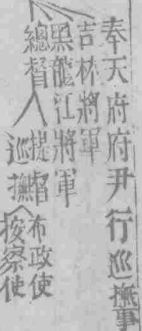 奉天府府尹行巡撫事
吉林將軍
黑龍江將軍
總督 提督 布政使
巡撫 按察使